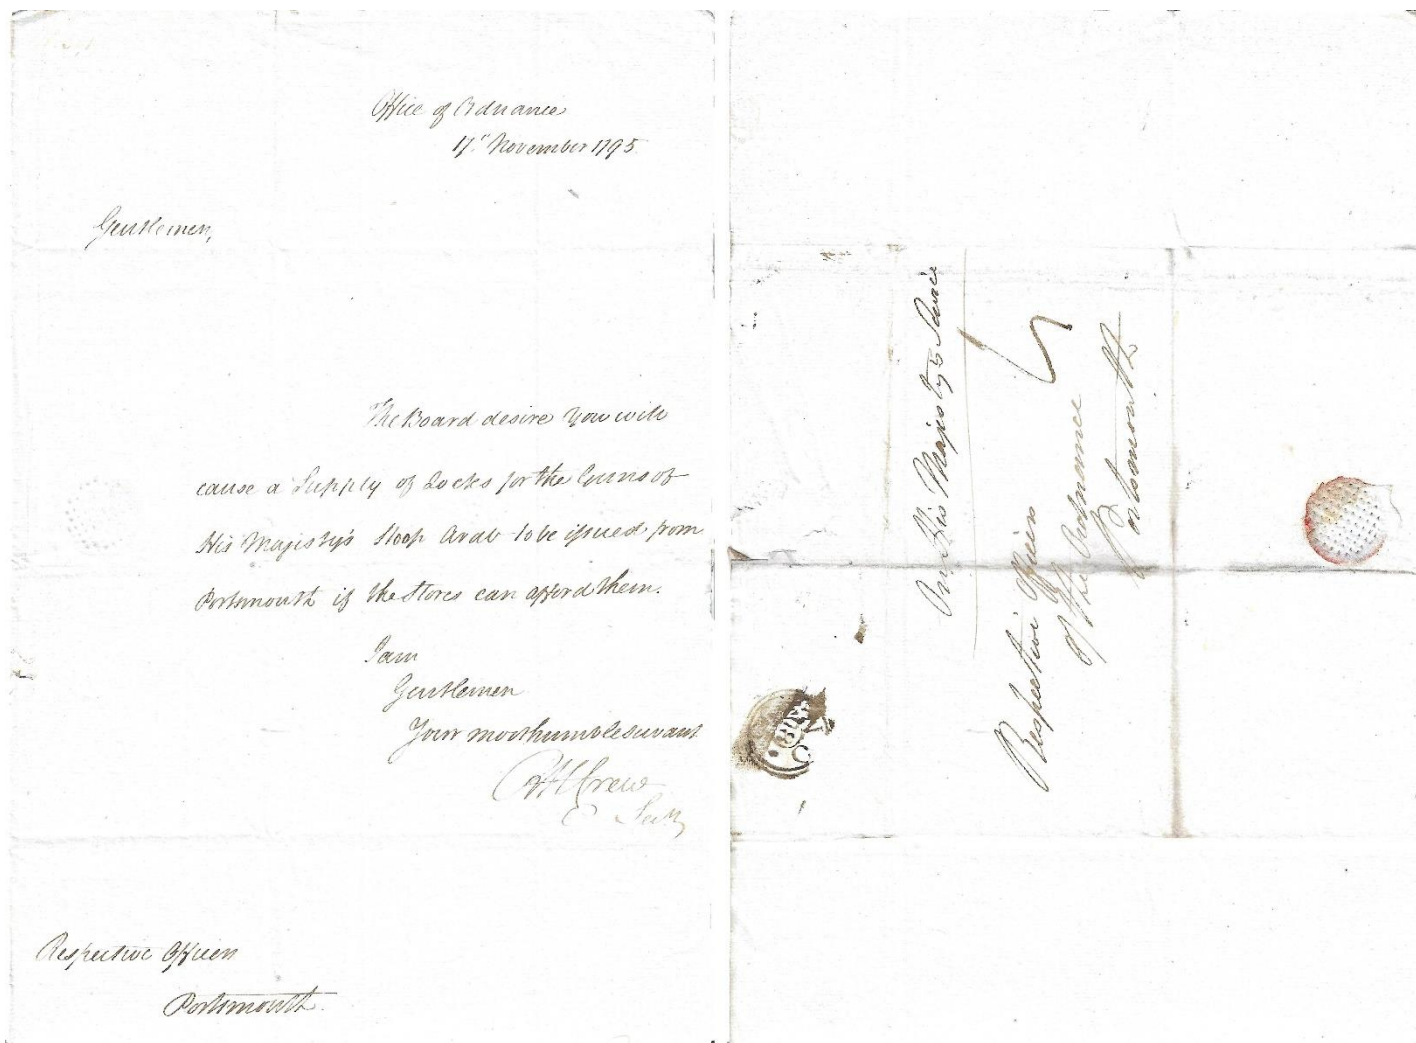 Office of Ordnance
17th November 1795.
Gentlemen,
The Board desire you will
cause a Supply of Locks for the Guns of
His Majesty's Sloop Arab to be issued from
Portsmouth if the Stores can afford them.
I am
Gentlemen
Your most humble servant
RH Crew
Secy
Respective Officers
Portsmouth.
On His Majesty's Service
5
Respective Officers
of the Ordnance
Portsmouth